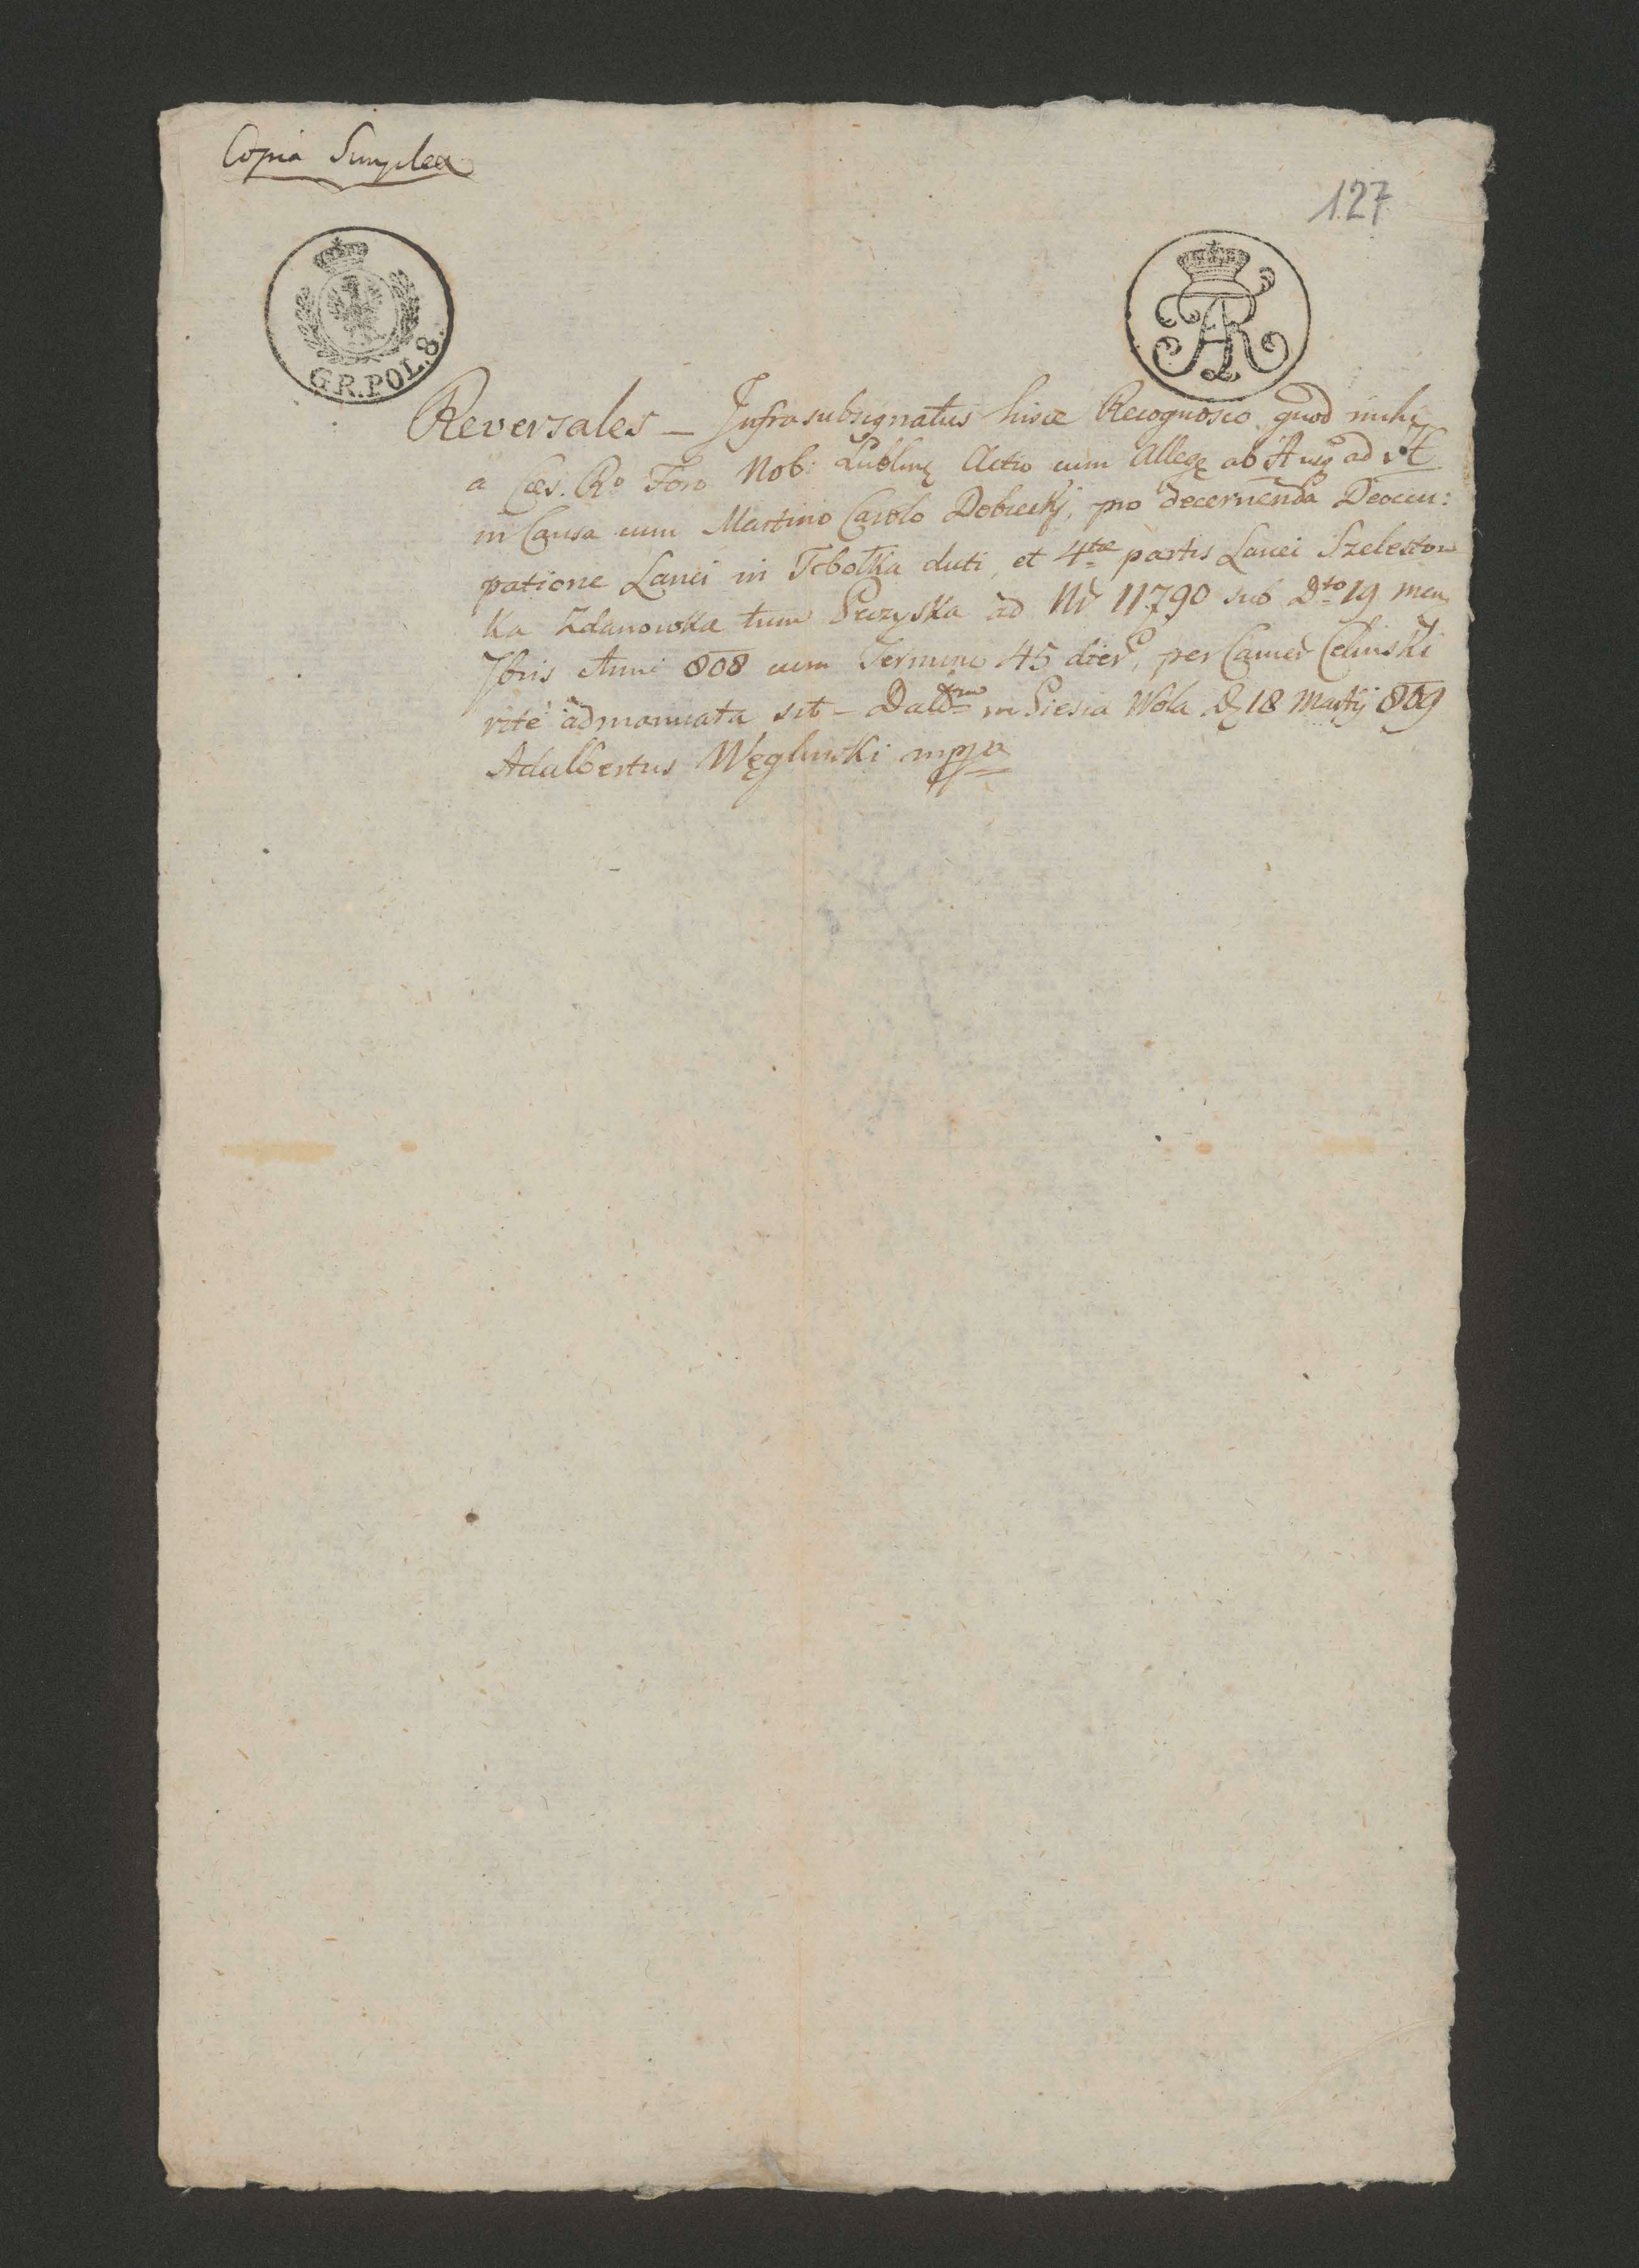 Copia Simplex
127
GR.POL.8.
AR
Reversales — Infrasubsignatus hisce Recognosco quod mihi
a Cæs. Ro Foro Nob: Lublinę Actio cum Alleg ab A usq ad
in Causa cum Martino Carolo Dobrecky, pro decernenda Deoccu:
patione Lanei in dicti, et 4tæ partis Lanei
ka Zdanowka tum ad Nr 11790 sub Dto 19 men
7bris Anni 808 cum Termino 45 dier, per Camer Celinski
rite admanuata sit — Datum in Piesia Wola D 18 Martij 809
Adalbertus Węglinski mppa